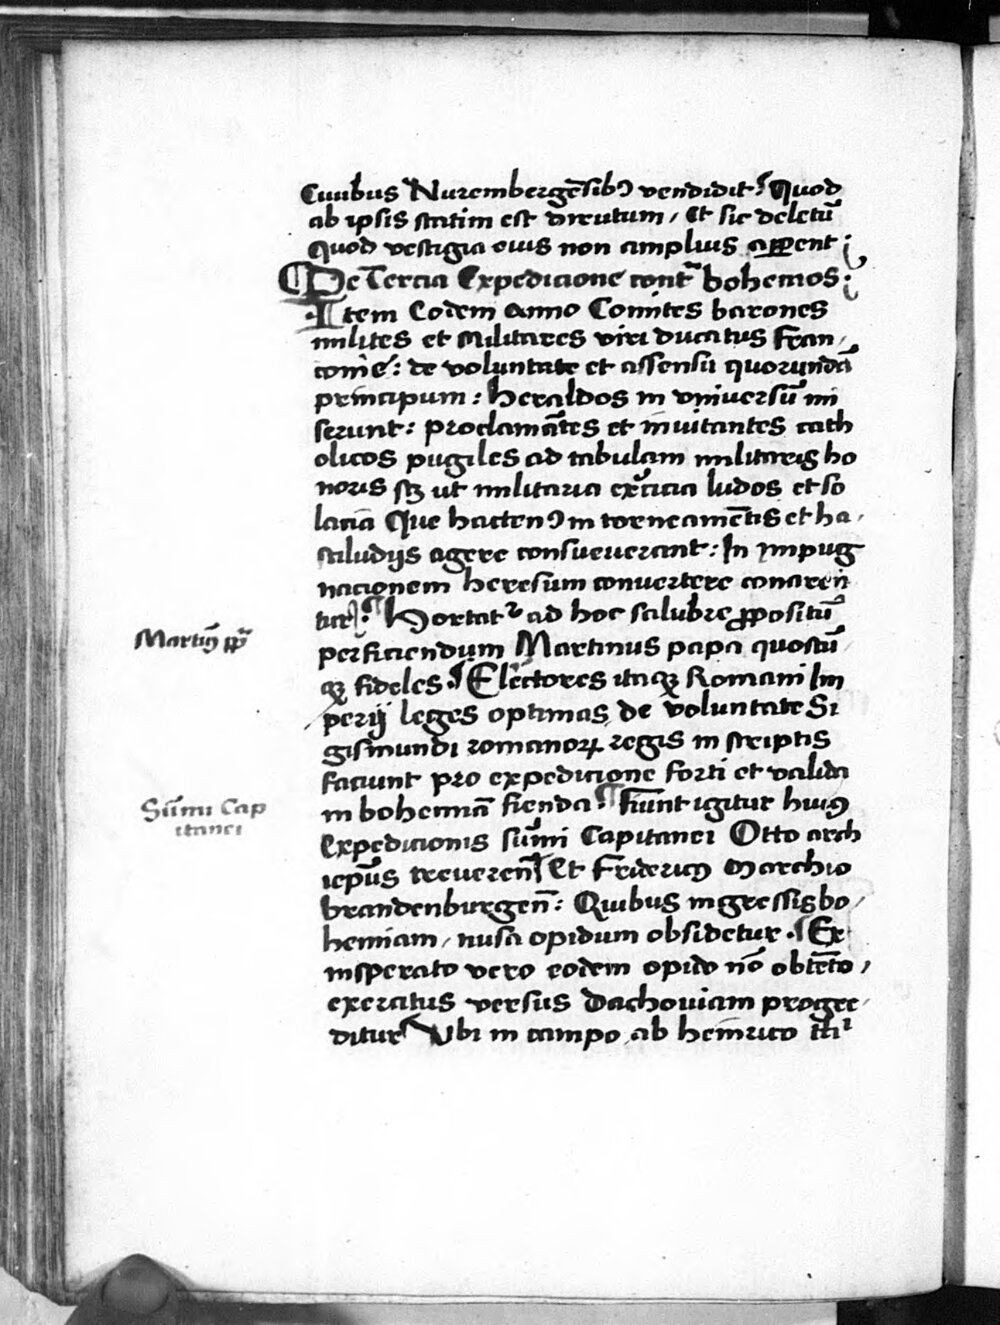 Ciuibus Nurembergēsibꝯ vendidit Quod
ab ipsis statim est dirutum / Et sic deletū
Quod vestigia eius non amplius apꝑent ;
¶ De Tercia Expedicione contra bohemos :
Item Eodem anno Comites barones
milites et Militares viri ducatus Fran /
conie : de voluntate et assensu quorundā
principum : Heraldos in vniuersū mi
serunt : proclamātes et inuitantes cath
olicos pugiles ad tabulam militaris ho
noris scꝫ ut militaria exercicia ludos et so
lacia Que hactenꝯ in torneamētis et ha /
stiludijs agere consueuerant : In impug
nacionem heresum conuertere conaren
tur Hortatur ad hoc salubre ꝓpositū
Martinꝯ pp̄
perficiendum Martinus papa quoscū
qꝫ fideles . Electores itaqꝫ Romani Im
perij leges optimas de voluntate Si
gismundi romanoꝝ regis in scriptis
faciunt pro expedicione forti et valida
Sūmi Cap
itanei
in bohemiā fienda ¶ Fiunt igitur huiꝯ
Expedicionis sūmi Capitanei Otto arch
iepūs treueren̄ Et Fridericꝯ Marchio
brandenburgen̄ : Quibus ingressis bo /
hemiam / nusa opidum obsidetur . Ex
insperato vero eodem opido nō obtēto /
exercitus versus Dachouiam progre /
ditur Vbi in campo ab heinrico